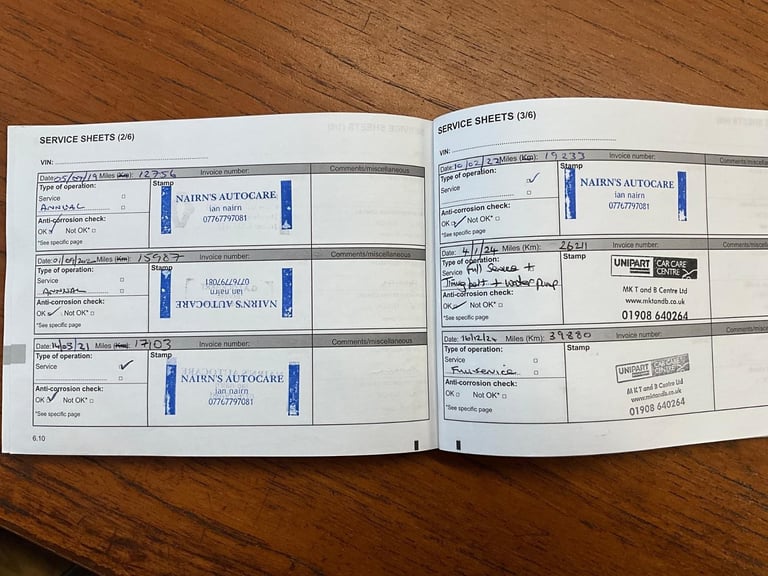 SERVICE SHEETS (2/6)
VIN:
Date: 05/07/19 Miles (Km): 12756 Invoice number: Comments/miscellaneous
Type of operation: Stamp
Service
ANNUAL
Anti-corrosion check:
OK Not OK*
*See specific page
NAIRN'S AUTOCARE
ian nairn
07767797081
Date: 01/09/202 Miles (Km): 15987 Invoice number: Comments/miscellaneous
Type of operation: Stamp
Service
ANNUAL
Anti-corrosion check:
OK Not OK*
*See specific page
NAIRN'S AUTOCARE
ian nairn
07767797081
Date: 14/09/21 Miles (Km): 17103 Invoice number: Comments/miscellaneous
Type of operation: Stamp
Service
Anti-corrosion check:
OK Not OK*
*See specific page
NAIRN'S AUTOCARE
ian nairn
07767797081
6.10
SERVICE SHEETS (3/6)
VIN:
Date: 10/02/22 Miles (Km): 19233 Invoice number: Comments/miscellaneous
Type of operation: Stamp
Service
Anti-corrosion check:
OK Not OK*
*See specific page
NAIRN'S AUTOCARE
ian nairn
07767797081
Date: 4/1/24 Miles (Km): 26211 Invoice number: Comments/miscellaneous
Type of operation: Stamp
Service Full Service +
+ water pump
Anti-corrosion check:
OK Not OK*
*See specific page
UNIPART CAR CARE CENTRE
MK T and B Centre Ltd
www.mktandb.co.uk
01908 640264
Date: 16/12/24 Miles (Km): 39880 Invoice number: Comments/miscellaneous
Type of operation: Stamp
Service
Full service
Anti-corrosion check:
OK Not OK*
*See specific page
UNIPART CAR CARE CENTRE
MK T and B Centre Ltd
www.mktandb.co.uk
01908 640264